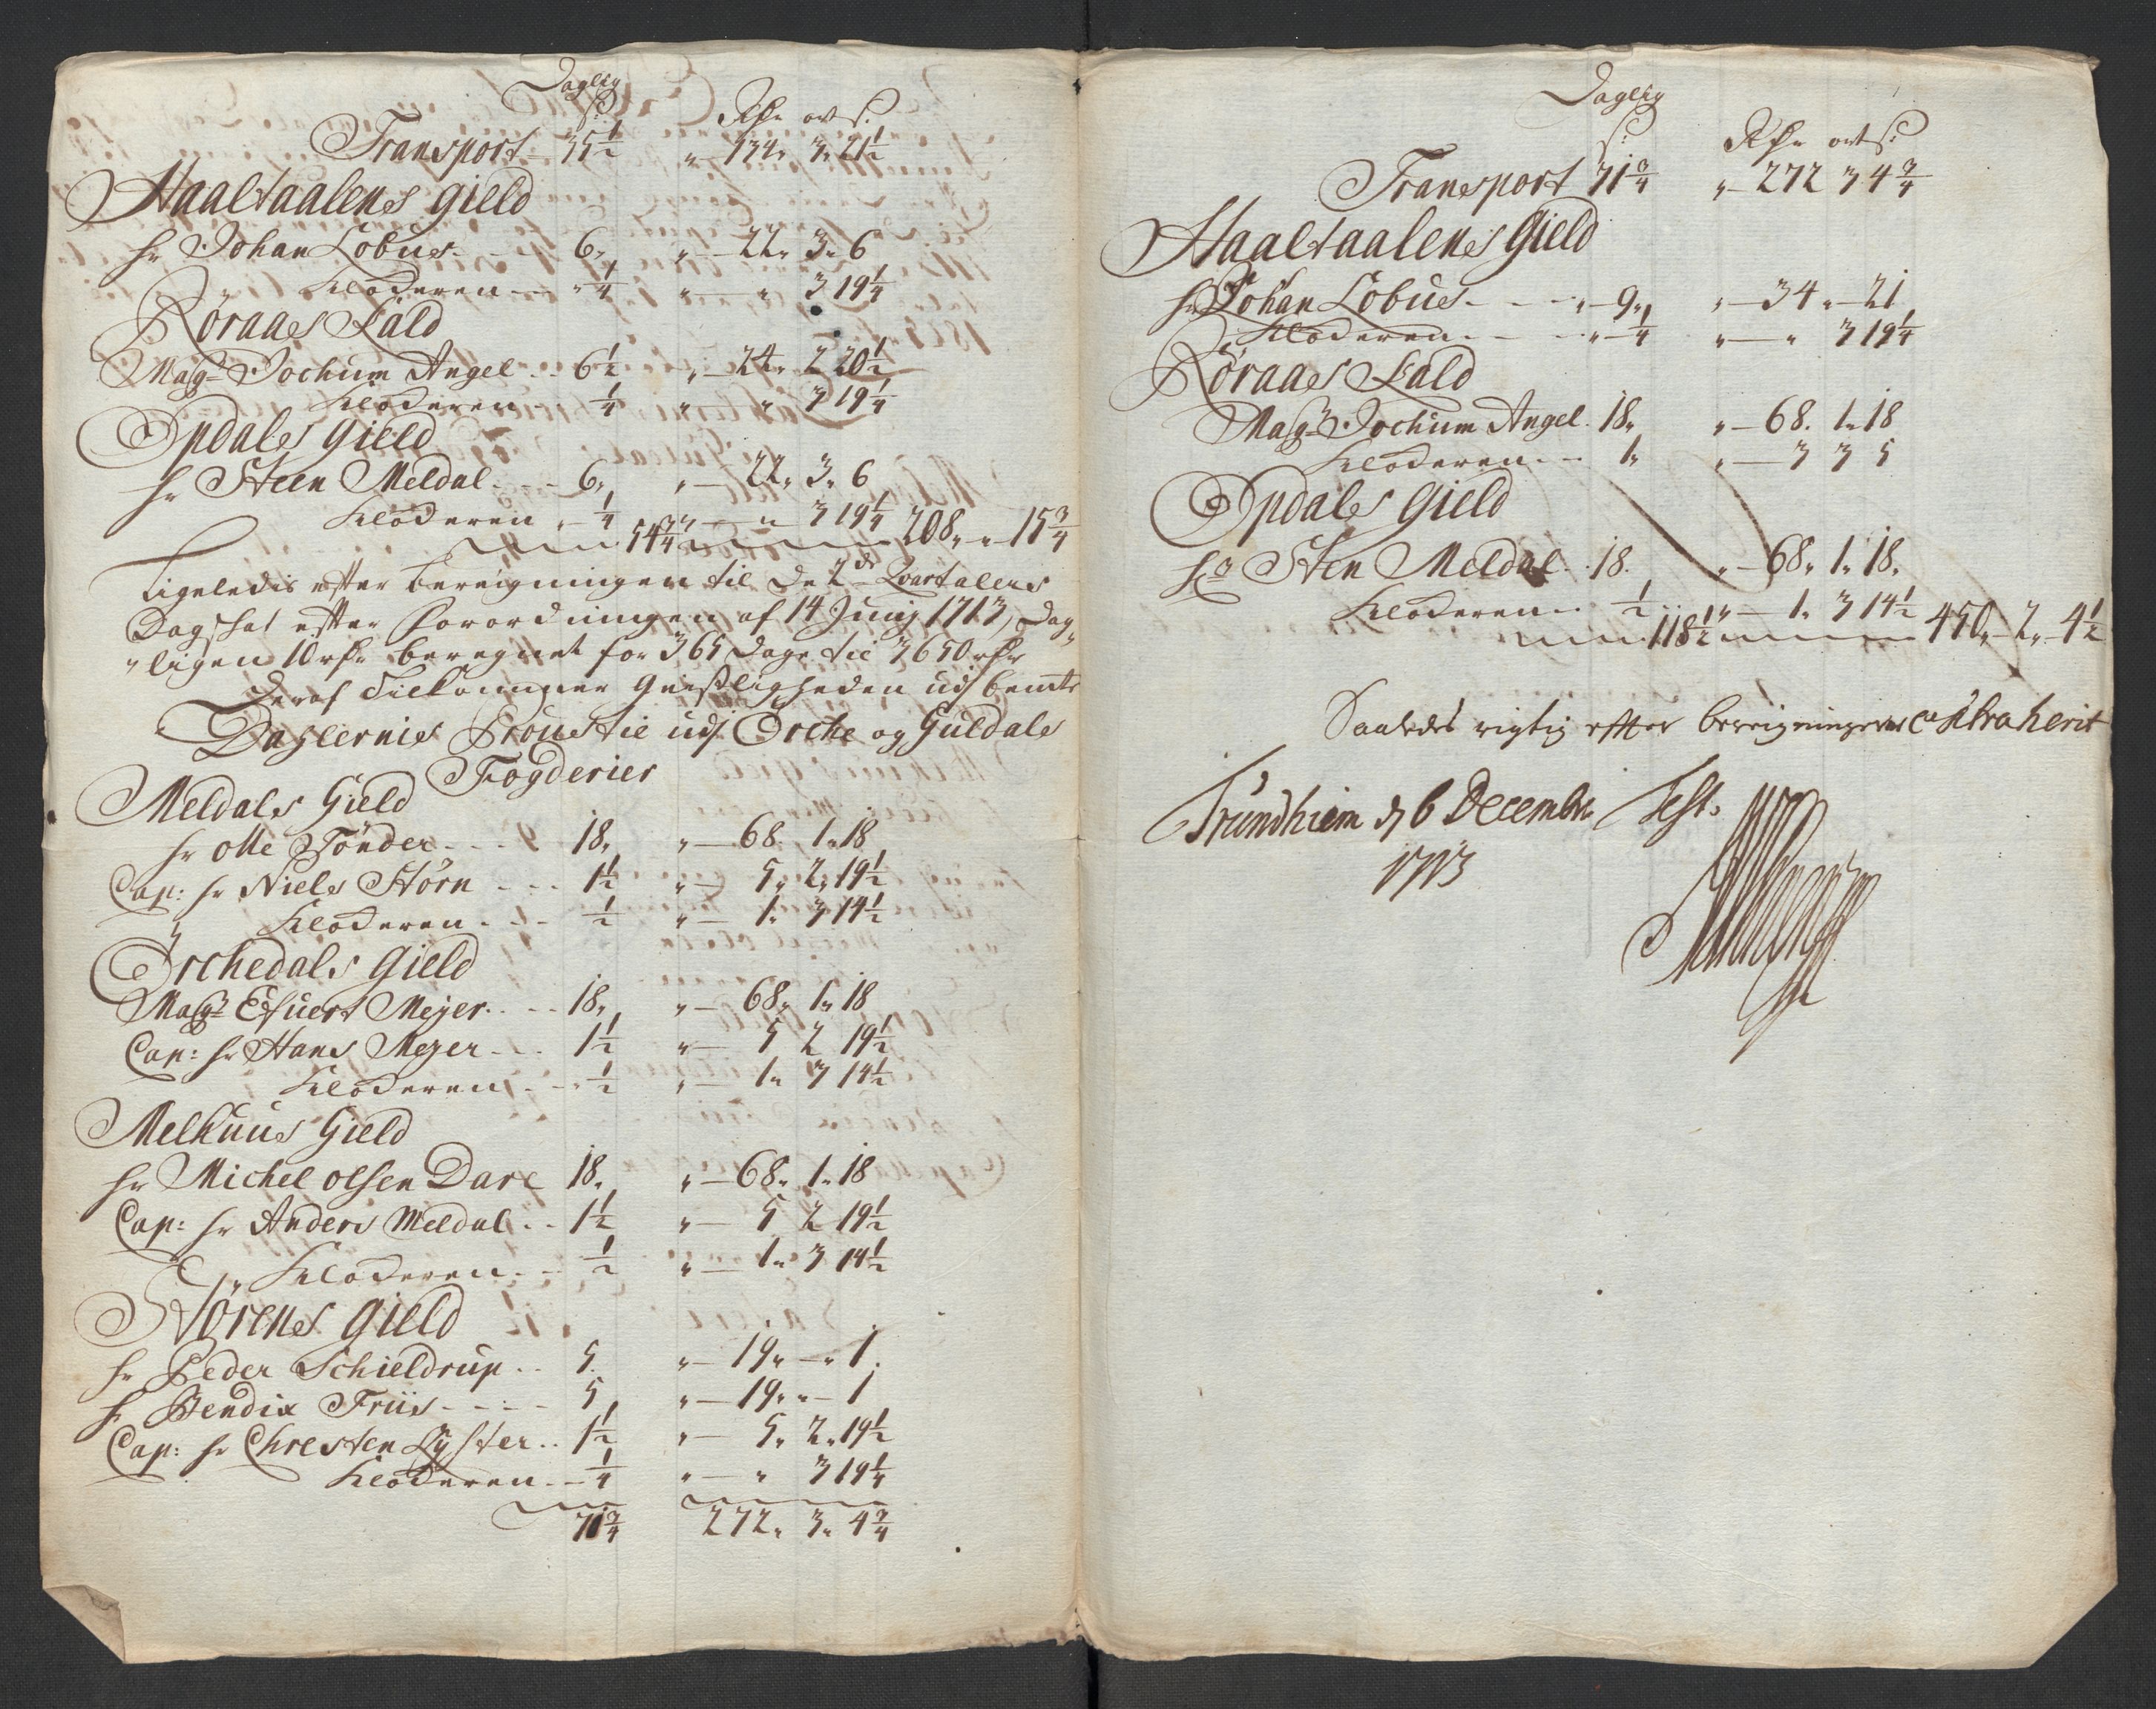 Daglig
s. Rdr ort s.
Transport 35½ „ 134„ 3„ 21½
Haaltaalens gield
hr Johan Lobus 6„ „ 22„ 3„ 6
Klockeren „ ¼ „ „ 3 19¼
Röraas Kald
Magr Jochum Angel 6½ „ 24„ 2 20½
Klockeren ¼ „ „ 3 19¼
Opdals gield
hr Steen Meldal 6„ „ 22„ 3„ 6
Klockeren „ ¼ „ „ 3 19¼
54¾ 208„ „ 15¾
Ligeledis efter bereigningen til de 2de Qvartalens
Dagskat efter forordningen af 14 Junij 1713, dag„
„ligen 10 rdr beregnet for 365 dage til 3650 rdr
Deraf tilkommer Geistligheden udj bemte
DahlernisProustie udj Orche og Guldals
Fogderier
Meldals Gield
hr Olle Tönder 18„ „ 68 1„ 18
Cap: hr Niels Störn 1½ „ 5„ 2„ 19½
„ Klockeren ½ „ 1„ 3 14½
Orchedals gield
Magr Efuert Meyer 18„ „ 68„ 1„ 18
Cap: hr Hans Meyer 1½ „ 5 2 19½
Klockeren ½ „ 1„ 3 14½
Melhuus Gield
hr Michel olsen Dare 18„ „ 68„ 1„ 18
Cap: hr Anders Meldal 1½ „ 5 2 19½
„ Klockeren ½ „ 1„ 3 14½
Störens gield
hr Peder Schieldrup 5 „ 19„ „ 1
hr Bendix Friis 5 „ 19„ „ 1
Cap: hr Chresten Lyster 1½ „ 5„ 2„ 19½
Klockeren ¼ „ „ 3 19¼
71¾ 272„ 3„ 4¾
Daglig
s. Rdr ort s.
Transport 71¾ „ 272 3 4¾
Haaltaalens Gield
hr Johan Lobus „ 9„ „ 34„ 21
Klockeren „ ¼ „ „ 3 19¼
Röraas Kald
Magr Jochum Angel 18„ „ 68. 1„ 18
Klockeren 1„ „ 3 3 5
Opdals gield
hr Sten Meldal 18. „ 68„ 1„ 18„
Klockeren ½ „ 1„ 3 14½
118½ 450„ 2„ 4½
Saaledes rigtig efter bereigningerne extraherit
Trundhiem d 6 Decembr Test.
1713